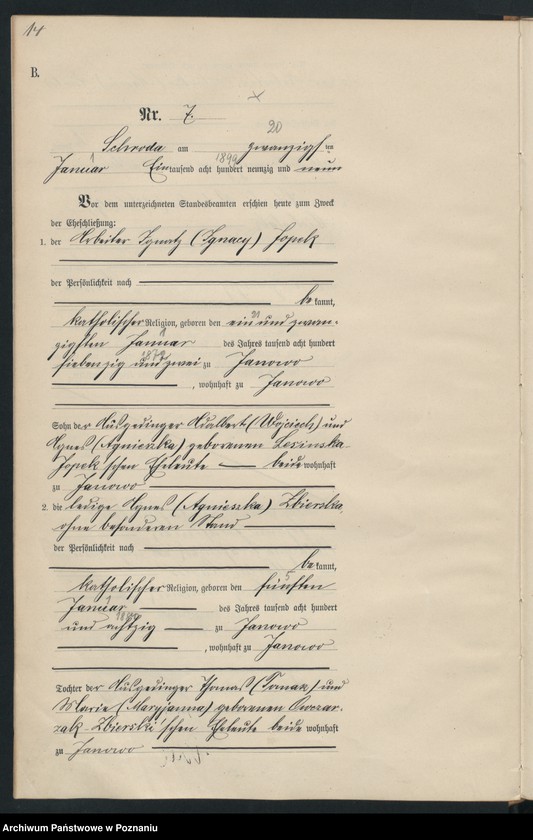 14
B.
Nr. 7.
20
Schroda am zwanzigsten
1899
Januar Eintausend acht hundert neunzig und neun
Vor dem unterzeichneten Standesbeamten erschien heute zum Zweck
der Eheschließung:
1. der Arbeiter Ignatz (Ignacy) Jopek
der Persönlichkeit nach
bekannt,
21
katholischer Religion, geboren den ein und zwan-
1
zigsten Januar des Jahres tausend acht hundert
1872
siebenzig und zwei zu Janowo
, wohnhaft zu Janowo
Sohn der Ausgedinger Adalbert (Wojciech) und
Agnes (Agnieszka) geborenen Lesinska
Jopek'schen Eheleute beide wohnhaft
zu Janowo
2. die ledige Agnes (Agnieszka) Zbierska,
ohne besonderen Stand
der Persönlichkeit nach
bekannt,
5
katholischer Religion, geboren den fünften
1
Januar des Jahres tausend acht hundert
1880
und achtzig zu Janowo
, wohnhaft zu Janowo
Tochter der Ausgedinger Thomas (Tomasz) und
Marie (Maryjanna) geborenen
Zbierski'schen Eheleute beide wohnhaft
zu Janowo
Archiwum Państwowe w Poznaniu